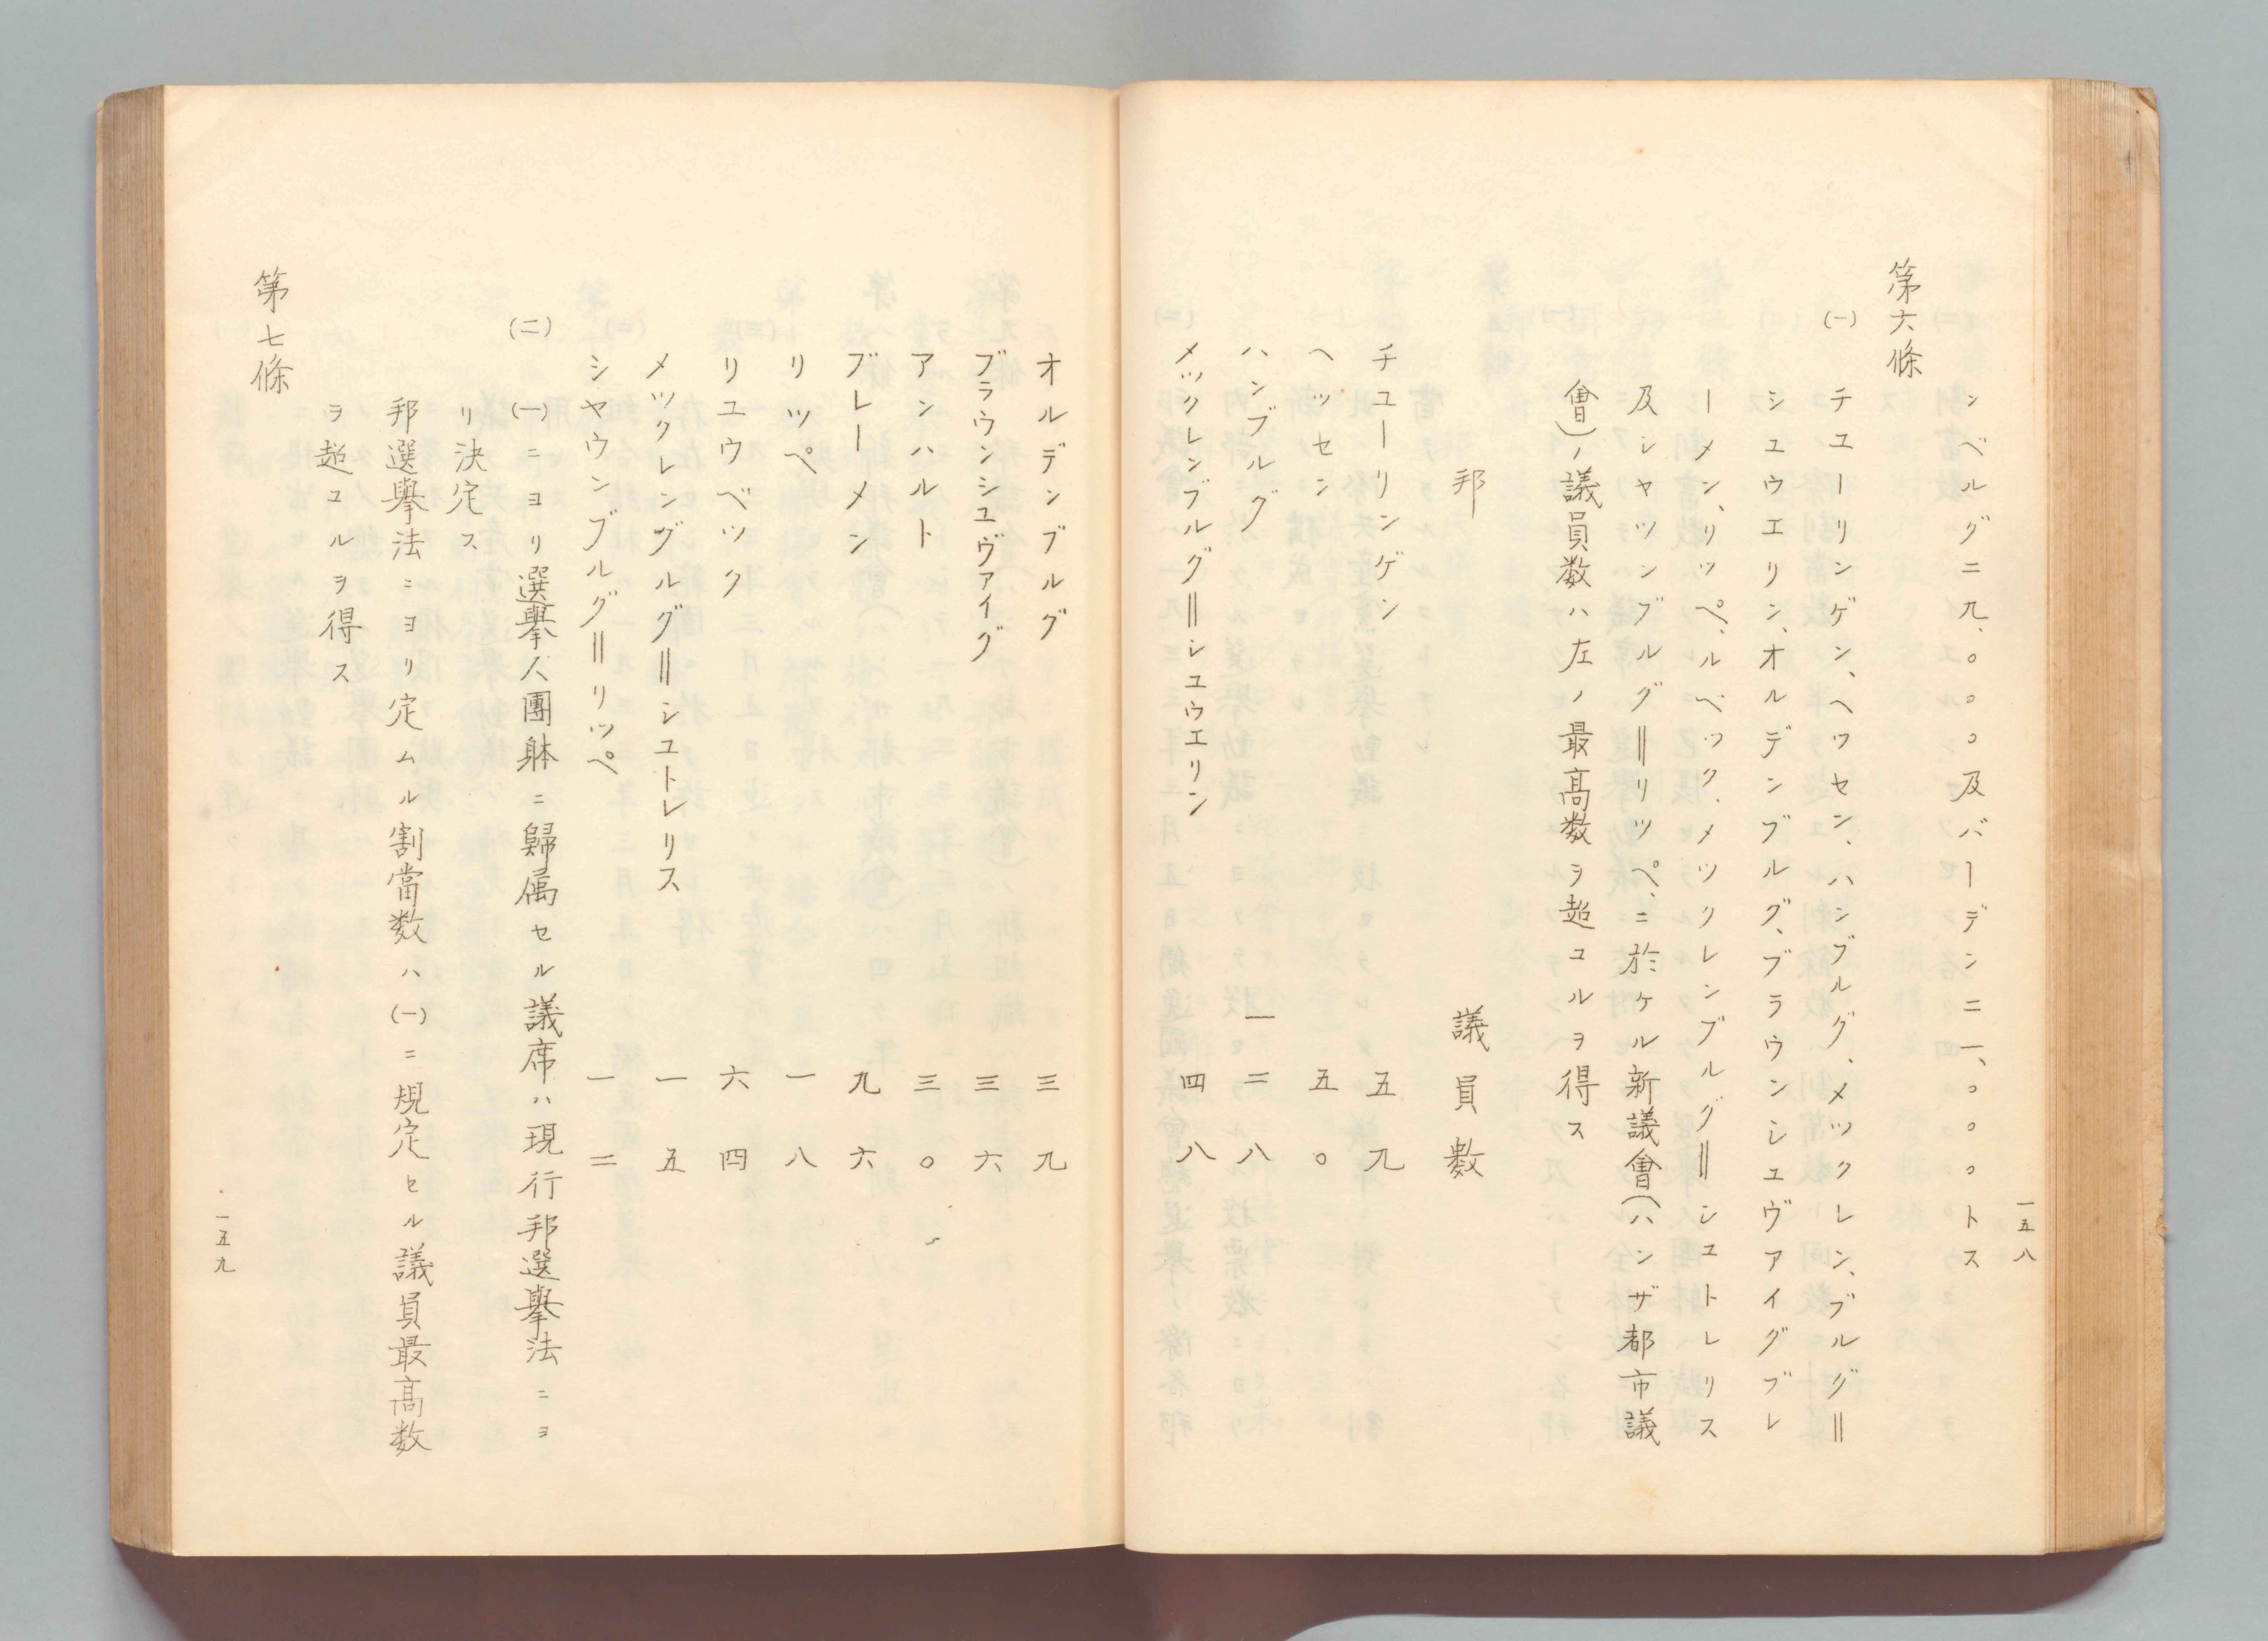 ンベルグニ九、〇〇〇及バーデンニ一、〇〇〇トス
第六條
(一) チユーリンゲン、ヘツセン、ハンブルグ、メツクレン、ブルグ＝
シユウエリン、オルデンブルグ、ブラウンシユヴアイグブレ
ーメン、リツペ、ルベツク、メツクレンブルグ＝シユトレリス
及シヤツンブルグ＝リツペ、ニ於ケル新議會(ハンザ都市議
會)ノ議員数ハ左ノ最高数ヲ超ユルヲ得ス
邦 議員數
チユーリンゲン 五九
ヘツセン 五〇
ハンブルグ 一二八
メツクレンブルグ＝シユウエリン 四八
一五八
オルデンブルグ 三九
ブラウンシユヴアイグ 三六
アンハルト 三〇
ブレーメン 九六
リツペ 一八
リユウベツク 六四
メツクレングルグ＝シユトレリス 一五
シヤウンブルグ＝リツペ 一二
(二) (一)ニヨリ選擧人團躰ニ歸属セル議席ハ現行邦選擧法ニヨ
リ決定ス
邦選擧法ニヨリ定ムル割當数ハ(一)ニ規定セル議員最高数
ヲ超ユルヲ得ス
第七條
一五九